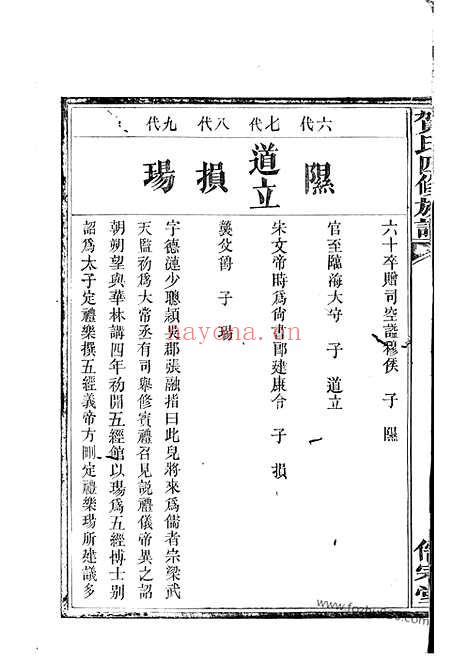 賀氏四修族譜
六代 七代 八代 九代
隰
道立
損
瑒
六十卒贈司空諡穆侯 子 隰
官至臨海大守 子 道立
宋文帝時爲尚書郎建康令 子 損
襲父爵 子 瑒
字德漣少聰頴吳郡張融指曰此兒將來爲儒者宗梁武
天監初爲大常丞有司舉修賓禮召見說禮儀帝異之詔
朝朔望與華林講四年初開五經館以瑒爲五經博士別
詔爲太子定禮樂撰五經義帝方剛定禮樂瑒所建議多
nayona.cn